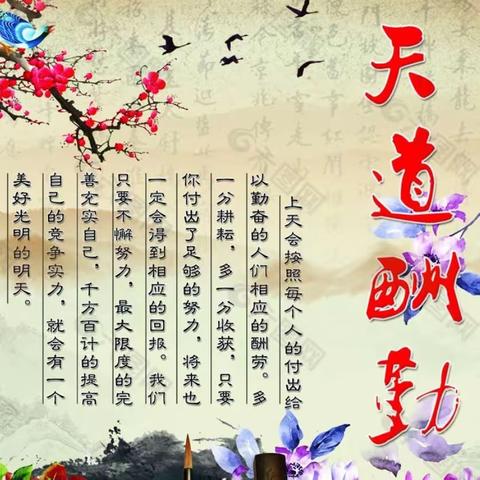 天道酬勤
上天会按照每个人的付出给
以勤奋的人们相应的酬劳。多
一分耕耘，多一分收获，只要
你付出了足够的努力，将来也
一定会得到相应的回报。我们
只要不懈努力，最大限度的完
善充实自己，千方百计的提高
自己的竞争实力，就会有一个
美好光明的明天。